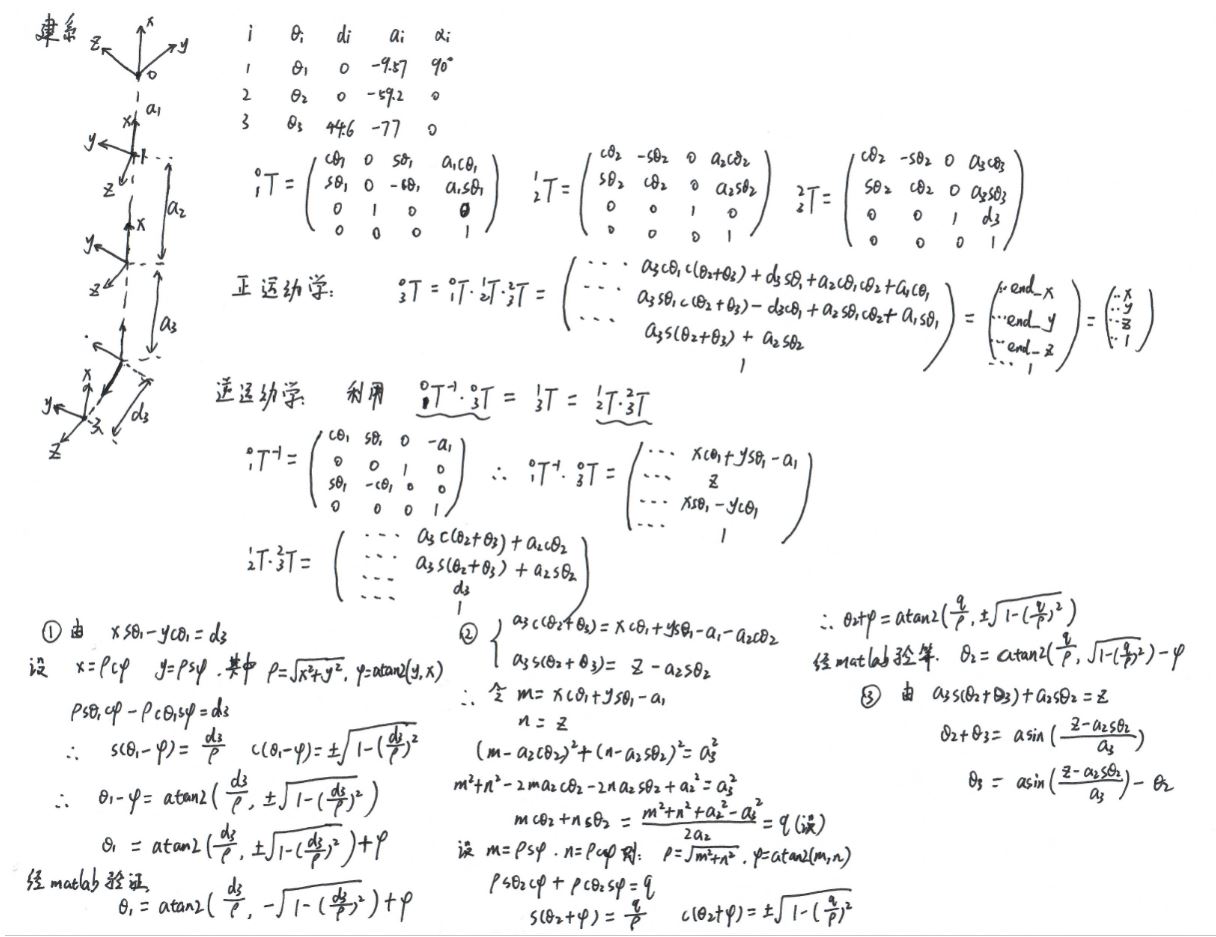 建系
x
z
y
o
a₁
x
y
1
z
a₂
x
y
z
a₃
x
y
3
z
d₃
i θi di ai αi
1 θ₁ 0 -9.57 90°
2 θ₂ 0 -59.2 0
3 θ₃ 44.6 -77 0
⁰₁T = ( cθ₁ 0 sθ₁ a₁cθ₁
sθ₁ 0 -cθ₁ a₁sθ₁
0 1 0 0
0 0 0 1 )
¹₂T = ( cθ₂ -sθ₂ 0 a₂cθ₂
sθ₂ cθ₂ 0 a₂sθ₂
0 0 1 0
0 0 0 1 )
²₃T = ( cθ₂ -sθ₂ 0 a₃cθ₃
sθ₂ cθ₂ 0 a₃sθ₃
0 0 1 d₃
0 0 0 1 )
正运动学: ⁰₃T = ⁰₁T·¹₂T·²₃T = ( ... a₃cθ₁c(θ₂+θ₃) + d₃sθ₁ + a₂cθ₁cθ₂ + a₁cθ₁
... a₃sθ₁c(θ₂+θ₃) - d₃cθ₁ + a₂sθ₁cθ₂ + a₁sθ₁
... a₃s(θ₂+θ₃) + a₂sθ₂
1 )
= ( ... end_x
... end_y
... end_z
... 1 )
= ( .. x
.. y
.. z
.. 1 )
逆运动学: 利用 ⁰₁T⁻¹·⁰₃T = ¹₃T = ¹₂T·²₃T
⁰₁T⁻¹ = ( cθ₁ sθ₁ 0 -a₁
0 0 1 0
sθ₁ -cθ₁ 0 0
0 0 0 1 )
∴ ⁰₁T⁻¹·⁰₃T = ( ... xcθ₁+ysθ₁-a₁
... z
... xsθ₁-ycθ₁
... 1 )
¹₂T·²₃T = ( ... a₃c(θ₂+θ₃) + a₂cθ₂
... a₃s(θ₂+θ₃) + a₂sθ₂
... d₃
... 1 )
① 由 xsθ₁-ycθ₁ = d₃
设 x=ρcφ y=ρsφ , 其中 ρ=√(x²+y²), φ=atan2(y,x)
ρsθ₁cφ-ρcθ₁sφ = d₃
∴ s(θ₁-φ) = d₃/ρ c(θ₁-φ) = ±√(1-(d₃/ρ)²)
∴ θ₁-φ = atan2(d₃/ρ, ±√(1-(d₃/ρ)²))
θ₁ = atan2(d₃/ρ, ±√(1-(d₃/ρ)²)) + φ
经matlab验证,
θ₁ = atan2(d₃/ρ, -√(1-(d₃/ρ)²)) + φ
② { a₃c(θ₂+θ₃) = xcθ₁+ysθ₁-a₁-a₂cθ₂
a₃s(θ₂+θ₃) = z-a₂sθ₂
∴ 令 m = xcθ₁+ysθ₁-a₁
n = z
(m-a₂cθ₂)²+(n-a₂sθ₂)² = a₃²
m²+n²-2ma₂cθ₂-2na₂sθ₂+a₂² = a₃²
mcθ₂+nsθ₂ = (m²+n²+a₂²-a₃²)/2a₂ = q (设)
设 m=ρsφ . n=ρcφ 则: ρ=√(m²+n²) , φ=atan2(m,n)
ρsθ₂cφ + ρcθ₂sφ = q
s(θ₂+φ) = q/ρ c(θ₂+φ) = ±√(1-(q/ρ)²)
∴ θ₂+φ = atan2(q/ρ, ±√(1-(q/ρ)²))
经matlab验算. θ₂ = atan2(q/ρ, √(1-(q/ρ)²)) - φ
③ 由 a₃s(θ₂+θ₃)+a₂sθ₂ = z
θ₂+θ₃ = asin((z-a₂sθ₂)/a₃)
θ₃ = asin((z-a₂sθ₂)/a₃) - θ₂